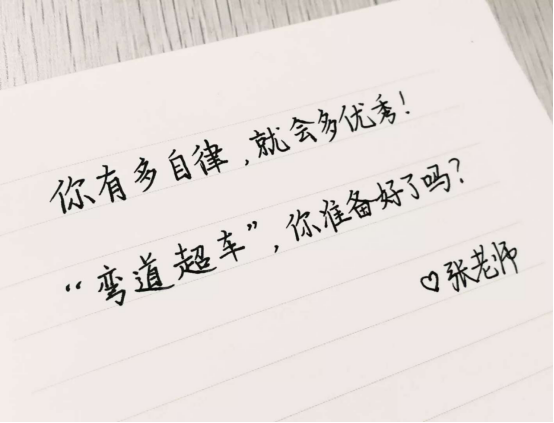 你有多自律，就会多优秀！
“弯道超车”，你准备好了吗？
♡张老师